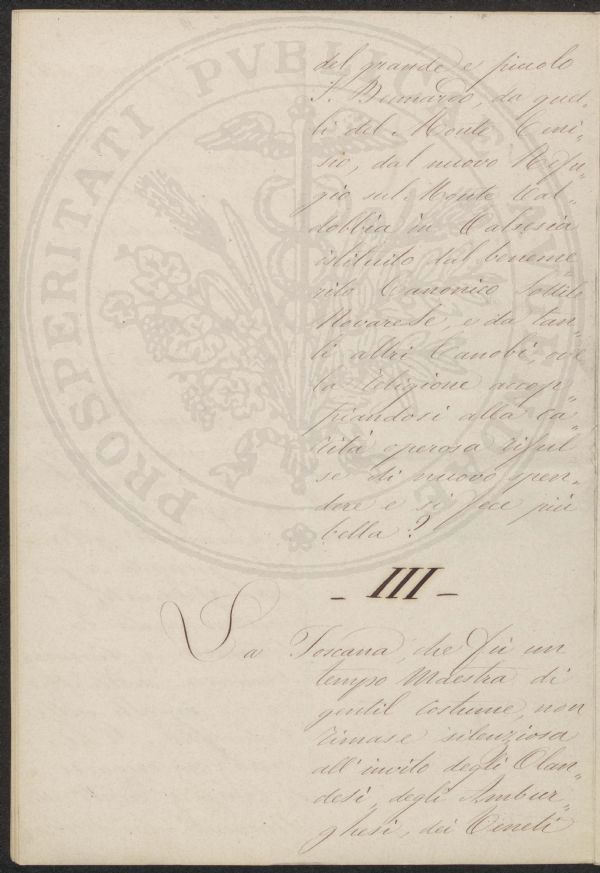 PROSPERITATI PVBLICAE
del grande e piccolo
S. Bernardo, da quel„
li del Monte Ceni„
sio, dal nuovo Rifu„
gio sul Monte Val„
dobbia in Valsesia
istituito dal beneme„
rito Canonico Sottile
Novarese, e da tan„
ti altri Cenobi, ove
la religione accop„
piandosi alla ca„
rità operosa riful„
se di nuovo splen„
dore e si fece più
bella?
– III –
La Toscana, che fù un
tempo Maestra di
gentil costume, non
rimase silenziosa
all' invito degli Olan„
desi, degli Ambur„
ghesi, dei Veneti